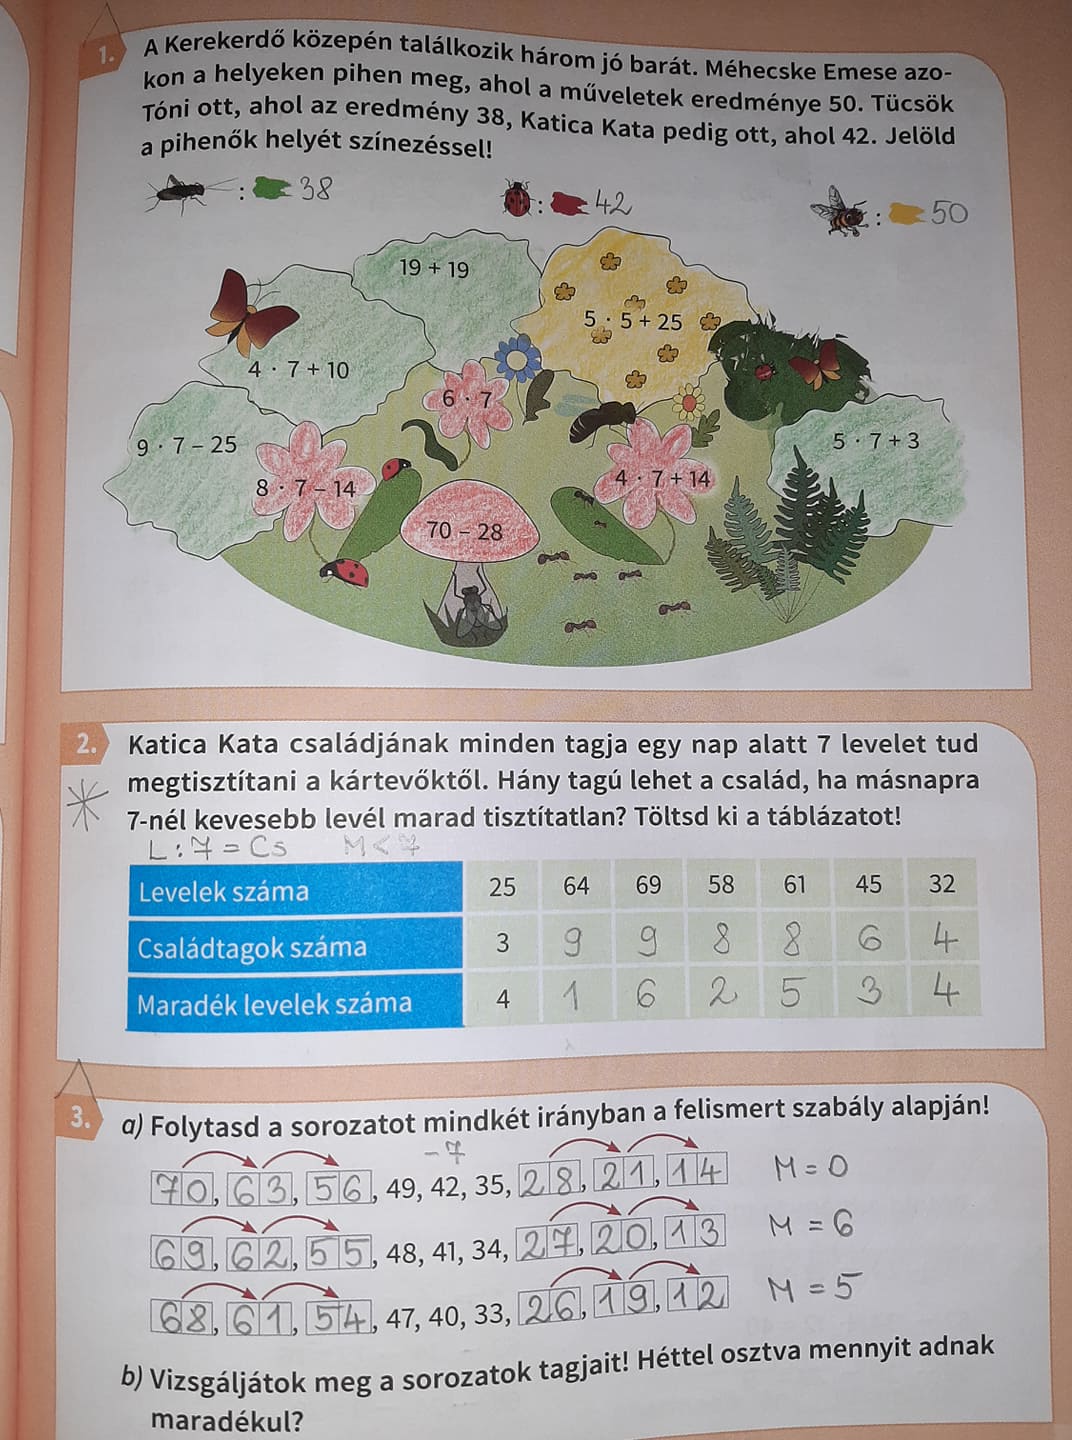 1.
A Kerekerdő közepén találkozik három jó barát. Méhecske Emese azo-
kon a helyeken pihen meg, ahol a műveletek eredménye 50. Tücsök
Tóni ott, ahol az eredmény 38, Katica Kata pedig ott, ahol 42. Jelöld
a pihenők helyét színezéssel!
: 38
: 42
: 50
19 + 19
5 · 5 + 25
4 · 7 + 10
6 · 7
9 · 7 – 25
5 · 7 + 3
8 · 7 – 14
4 · 7 + 14
70 – 28
2.
Katica Kata családjának minden tagja egy nap alatt 7 levelet tud
megtisztítani a kártevőktől. Hány tagú lehet a család, ha másnapra
7-nél kevesebb levél marad tisztítatlan? Töltsd ki a táblázatot!
L : 7 = Cs M < 7
Levelek száma 25 64 69 58 61 45 32
Családtagok száma 3 9 9 8 8 6 4
Maradék levelek száma 4 1 6 2 5 3 4
3.
a) Folytasd a sorozatot mindkét irányban a felismert szabály alapján!
-7
70, 63, 56, 49, 42, 35, 28, 21, 14 M = 0
69, 62, 55, 48, 41, 34, 27, 20, 13 M = 6
68, 61, 54, 47, 40, 33, 26, 19, 12 M = 5
b) Vizsgáljátok meg a sorozatok tagjait! Héttel osztva mennyit adnak
maradékul?